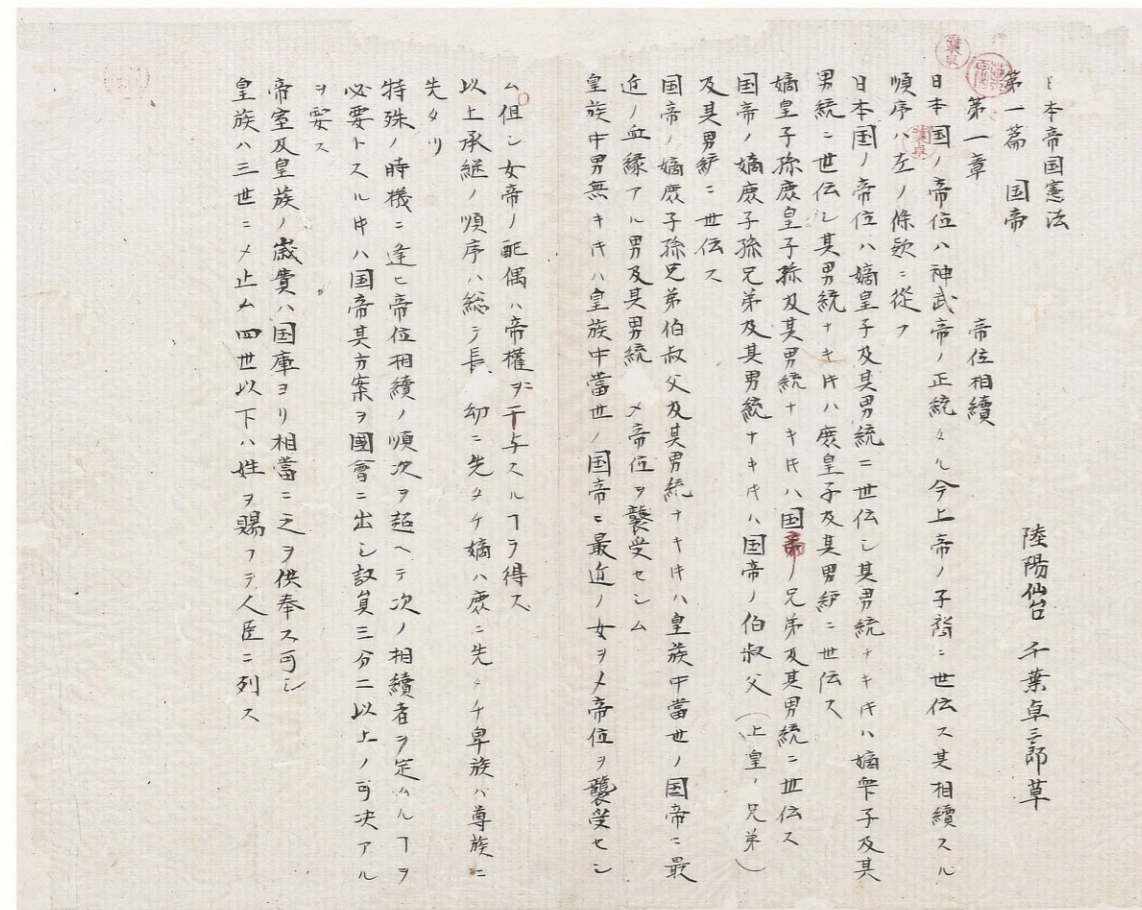 日本帝国憲法
陸陽仙台 千葉卓三郎草
第一篇 国帝
第一章 帝位相續
日本国ノ帝位ハ神武帝ノ正統タル今上帝ノ子裔ニ世伝ス其相續スル
順序ハ左ノ條欵ニ從フ
日本国ノ帝位ハ嫡皇子及其男統ニ世伝シ其男統ナキ𪜈ハ嫡衆子及其
男統ニ世伝シ其男統ナキ𪜈ハ庶皇子及其男統ニ世伝ス
嫡皇子孫庶皇子孫及其男統ナキ𪜈ハ国帝ノ兄弟及其男統ニ世伝ス
国帝ノ嫡庶子孫兄弟及其男統ナキ𪜈ハ国帝ノ伯叔父（上皇ノ兄弟）
及其男統ニ世伝ス
国帝ノ嫡庶子孫兄弟伯叔父及其男統ナキ𪜈ハ皇族中當世ノ国帝ニ最
近ノ血縁アル男及其男統 メ帝位ヲ襲受セシム
皇族中男無キ𪜈ハ皇族中當世ノ国帝ニ最近ノ女ヲメ帝位ヲ襲受セシ
ム但シ女帝ノ配偶ハ帝權ニ干与スルヿヲ得ス
以上承継ノ順序ハ総テ長 幼ニ先タチ嫡ハ庶ニ先タチ卑族ハ尊族ニ
先タリ
特殊ノ時機ニ逢ヒ帝位相續ノ順次ヲ超ヘテ次ノ相續者ヲ定ムルヿヲ
必要トスル𪜈ハ国帝其方案ヲ國會ニ出シ議員三分二以上ノ可决アル
ヲ要ス
帝室及皇族ノ歳費ハ国庫ヨリ相當ニ之ヲ供奉ス可シ
皇族ハ三世ニメ止ム四世以下ハ姓ヲ賜フテ人臣ニ列ス